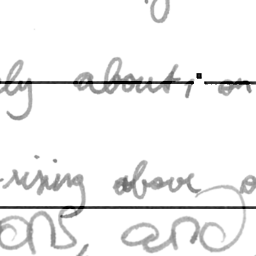 ly about, on
-rising above
ans, and